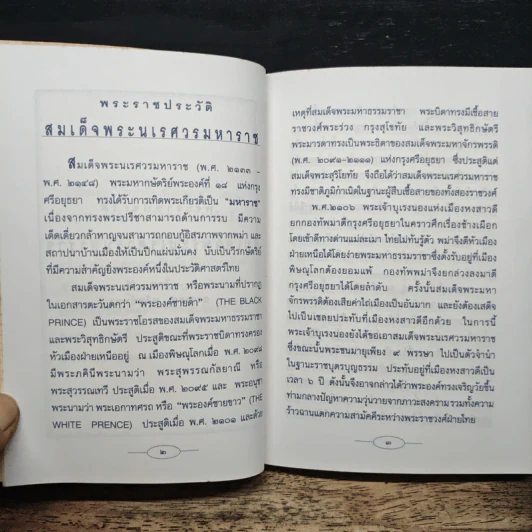 พระราชประวัติ
สมเด็จพระนเรศวรมหาราช
สมเด็จพระนเรศวรมหาราช (พ.ศ. ๒๑๓๓ -
พ.ศ. ๒๑๔๘) พระมหากษัตริย์พระองค์ที่ ๑๘ แห่งกรุง
ศรีอยุธยา ทรงได้รับการเทิดพระเกียรติเป็น "มหาราช"
เนื่องจากทรงพระปรีชาสามารถด้านการรบ มีความ
เด็ดเดี่ยวกล้าหาญจนสามารถกอบกู้อิสรภาพจากพม่า และ
สถาปนาบ้านเมืองให้เป็นปึกแผ่นมั่นคง นับเป็นวีรกษัตริย์
ที่มีความสำคัญยิ่งพระองค์หนึ่งในประวัติศาสตร์ไทย
สมเด็จพระนเรศวรมหาราช หรือพระนามที่ปรากฏ
ในเอกสารตะวันตกว่า "พระองค์ชายดำ" (THE BLACK
PRINCE) เป็นพระราชโอรสของสมเด็จพระมหาธรรมราชา
และพระวิสุทธิกษัตรี ประสูติขณะที่พระราชบิดาทรงครอง
หัวเมืองฝ่ายเหนืออยู่ ณ เมืองพิษณุโลกเมื่อ พ.ศ. ๒๐๙๘
มีพระภคินีพระนามว่า พระสุพรรณกัลยาณี หรือ
พระสุวรรณเทวี ประสูติเมื่อ พ.ศ. ๒๐๙๕ และ พระอนุชา
พระนามว่า พระเอกาทศรถ หรือ "พระองค์ชายขาว" (THE
WHITE PRENCE) ประสูติเมื่อ พ.ศ. ๒๑๐๑ และด้วย
๒
เหตุที่สมเด็จพระมหาธรรมราชา พระบิดาทรงมีเชื้อสาย
ราชวงศ์พระร่วง กรุงสุโขทัย และพระวิสุทธิกษัตรี
พระมารดาทรงเป็นพระธิดาของสมเด็จพระมหาจักรพรรดิ
(พ.ศ. ๒๐๙๑-๒๑๑๑) แห่งกรุงศรีอยุธยา ซึ่งประสูติแต่
สมเด็จพระสุริโยทัย จึงถือได้ว่าสมเด็จพระนเรศวรมหาราช
ทรงมีชาติภูมิกำเนิดในฐานะผู้สืบเชื้อสายของทั้งสองราชวงศ์
พ.ศ.๒๑๐๖ พระเจ้าบุเรงนองแห่งเมืองหงสาวดี
ยกกองทัพมาตีกรุงศรีอยุธยาในคราวศึกเรื่องช้างเผือก
โดยเข้าตีทางด่านแม่ละเมา ไทยไม่ทันรู้ตัว พม่าจึงตีหัวเมือง
ฝ่ายเหนือได้โดยง่ายพระมหาธรรมราชาซึ่งตั้งรับอยู่ที่เมือง
พิษณุโลกต้องยอมแพ้ กองทัพพม่าจึงยกล่วงลงมาตี
กรุงศรีอยุธยาได้โดยลำดับ ครั้งนั้นสมเด็จพระมหา
จักรพรรดิต้องเสียค่าไถ่เมืองเป็นอันมาก และยังต้องเสด็จ
ไปเป็นเชลยประทับที่เมืองหงสาวดีอีกด้วย ในการนี้
พระเจ้าบุเรงนองยังได้ขอเอาสมเด็จพระนเรศวรมหาราช
ซึ่งขณะนั้นพระชนมายุเพียง ๙ พรรษา ไปเป็นตัวจำนำ
ในฐานะราชบุตรบุญธรรม ประทับอยู่ที่เมืองหงสาวดีเป็น
เวลา ๖ ปี ดังนั้นจึงอาจกล่าวได้ว่าพระองค์ทรงเจริญวัยขึ้น
ท่ามกลางปัญหาความวุ่นวายจากภาวะสงครามรวมทั้งความ
ร้าวฉานแตกความสามัคคีระหว่างพระราชวงศ์ฝ่ายไทย
๓